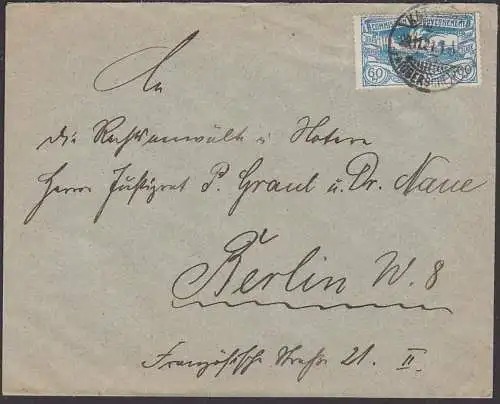 COMMISSION DE GOUVERNEMENT
60 60
An
die Rechtsanwälte u Notare
Herrn Justizrat P. Graul u. Dr. Naue
Berlin W. 8
Französische Straße 21. II.